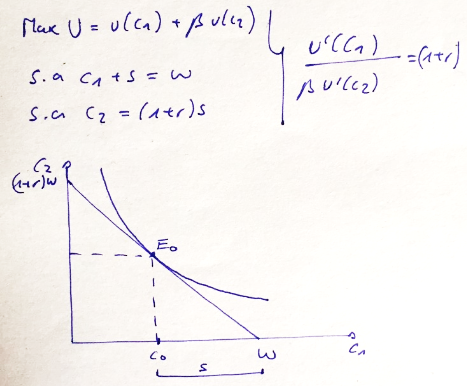 Max U = u(c₁) + β u(c₂)
s.a c₁ + s = w
s.a c₂ = (1+r)s
U'(C₁)
β U'(c₂)
=(1+r)
C₂
(1+r)w
E₀
C₀
W
C₁
s